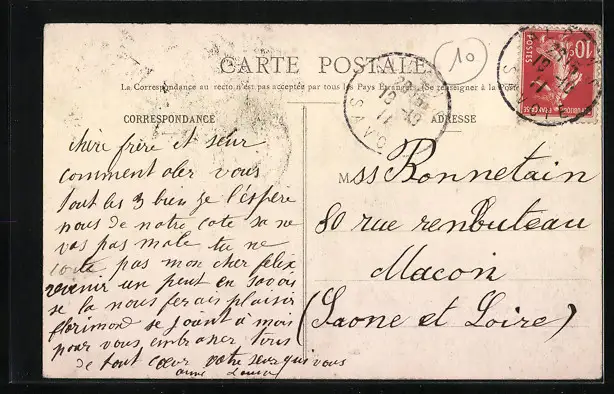 CARTE POSTALE
10
La Correspondance au recto n'est pas acceptée par tous les Pays Etrangers. (Se renseigner à la Poste
CORRESPONDANCE
ADRESSE
POSTES
10c
SAVOIE
chère frère et seur
comment aler vous
tout les 3 bien je l'éspère
nous de notre cote sa ne
vas pas male tu ne
pas mon cher félix
venir un peut en savoi
se la nous ferais plaisir
florimond se joint à mois
pour vous embrasser tous
de tout cœur votre seur qui vous
aime
M ss Bonnetain
80 rue renbuteau
Macon
(Saone et Loire)